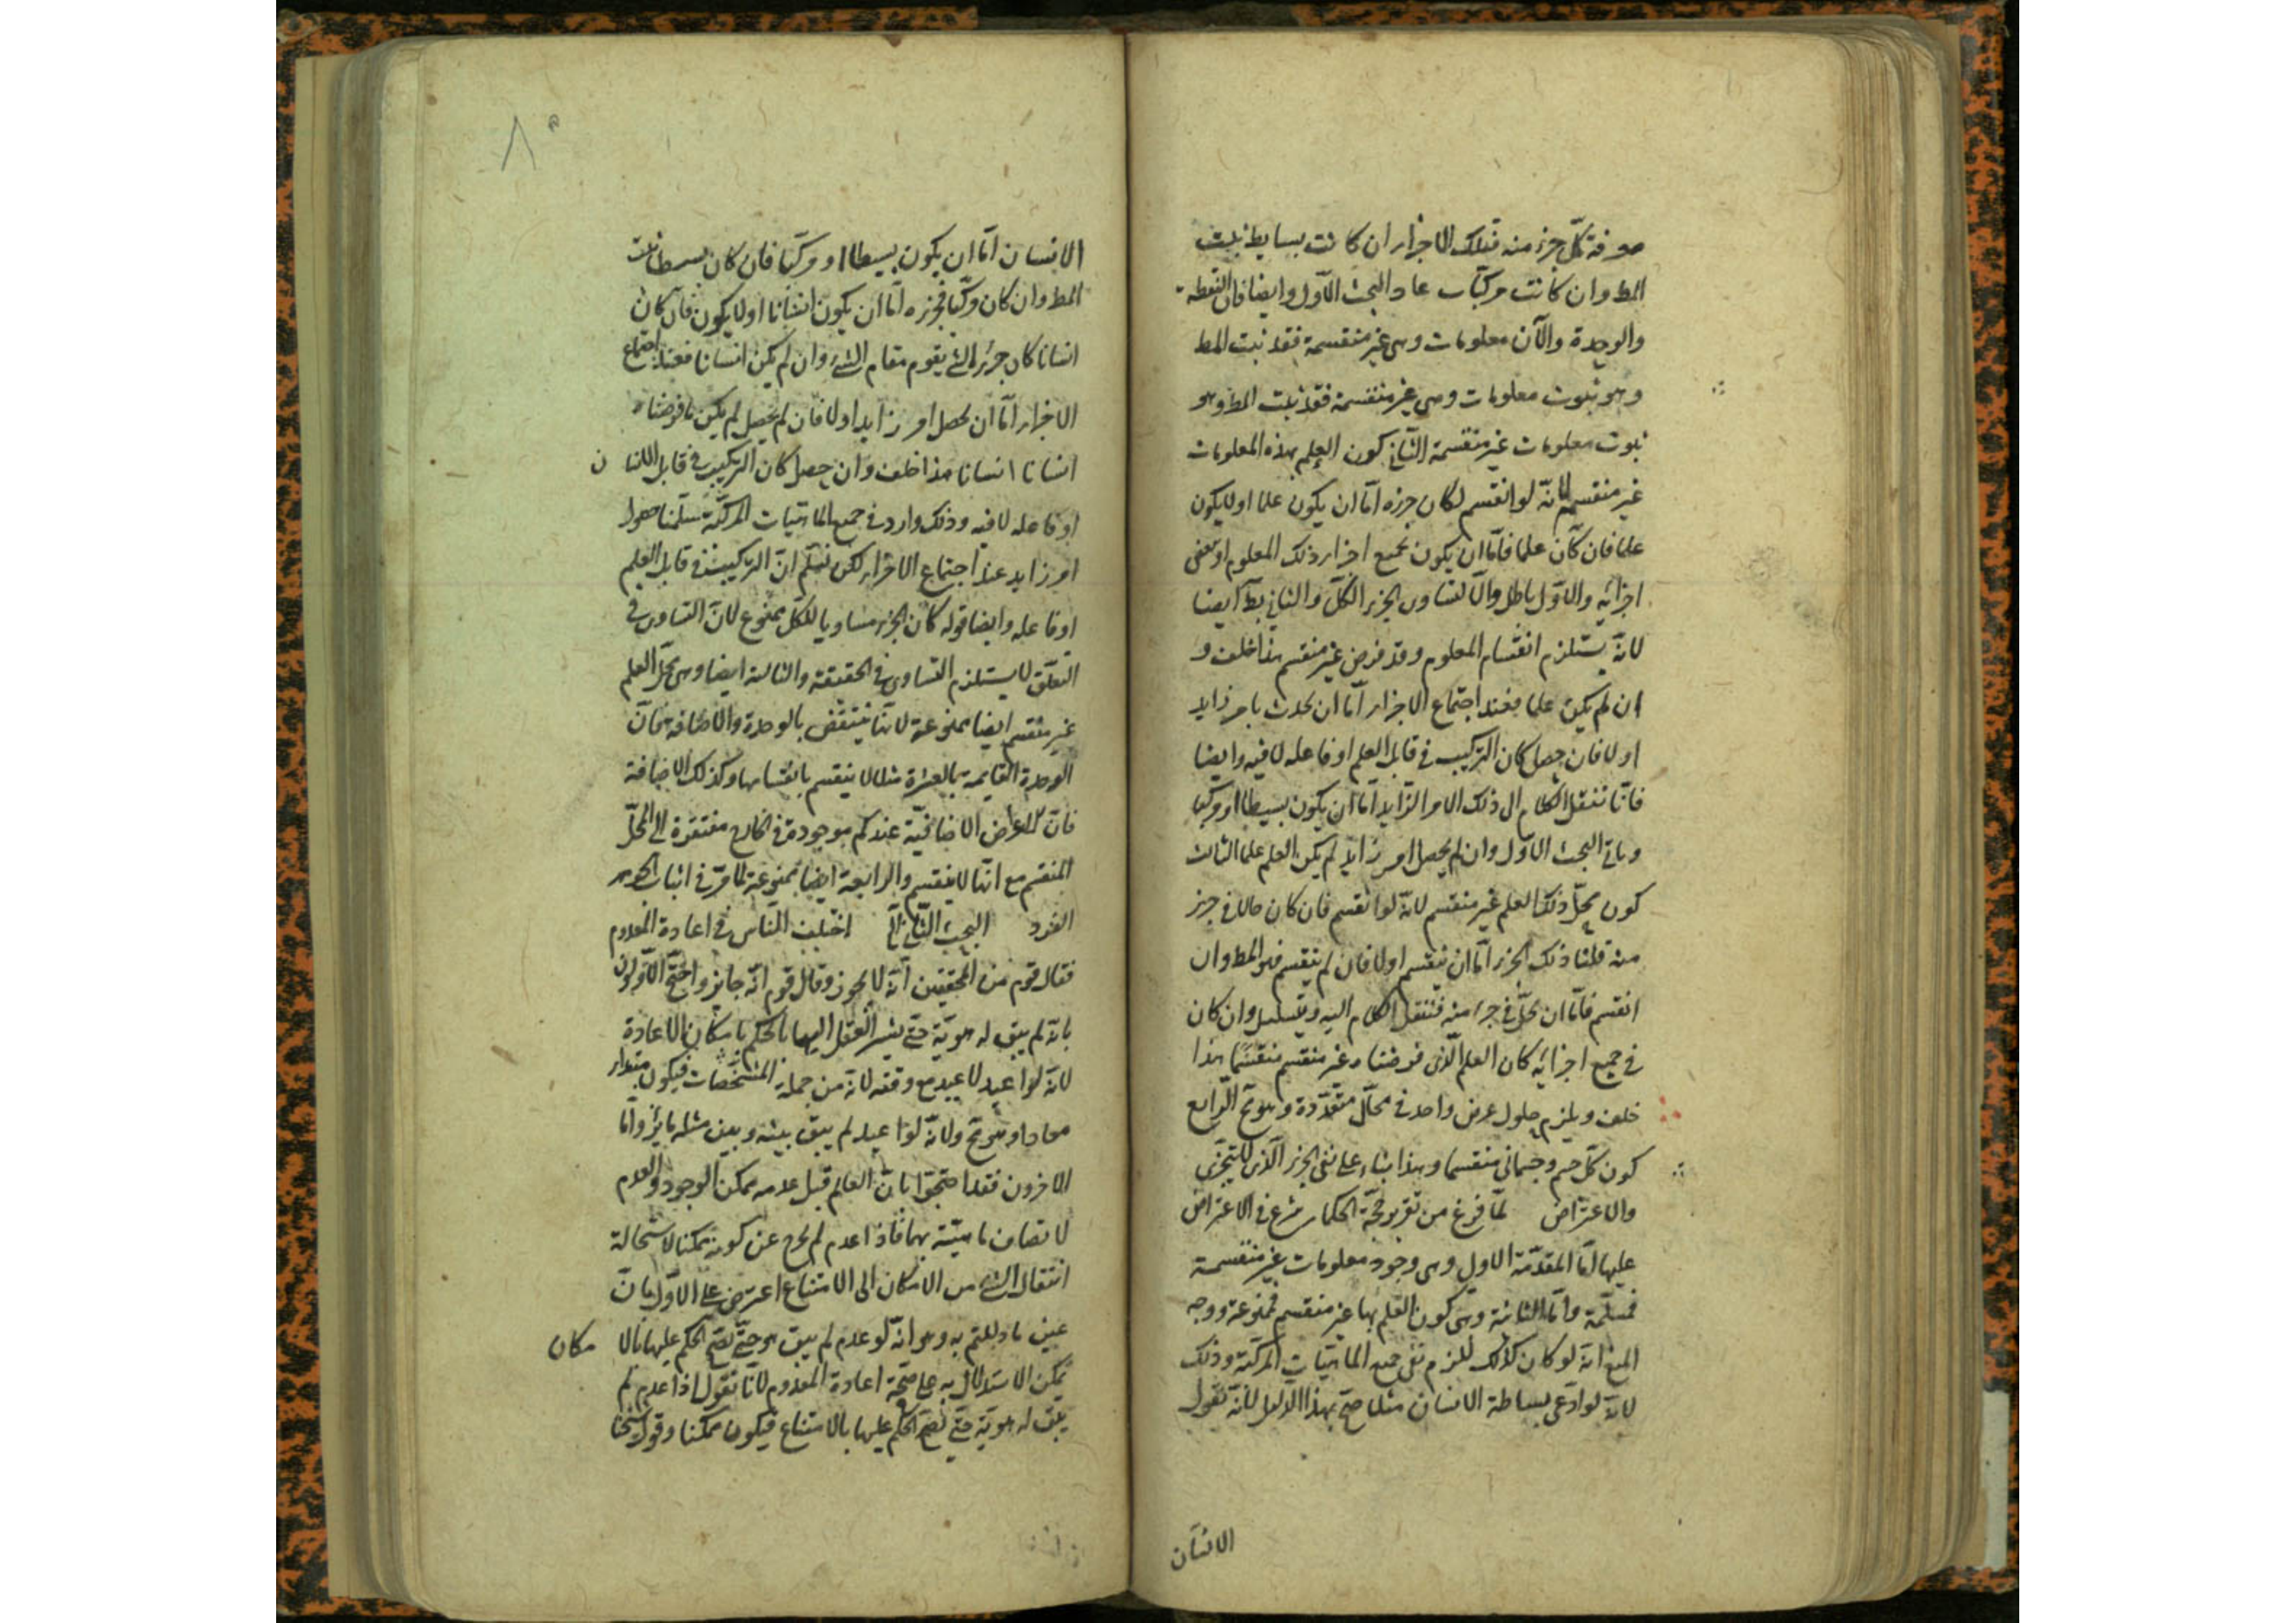 معرفة كلّ جزء منه فتلك الاجزاء ان كانت بسايط ثبت
المط وان كانت مركبات عاد البحث الاول وايضا فان النقطه
والوحدة والآن معلومات وهى غير منقسمة فقد ثبت المط
وهو ثبوت معلومات وهى غير منقسمة فقد ثبت المط وهو
ثبوت معلومات غير منقسمة الثانى كون العلم بهذه المعلومات
غير منقسم لانّه لو انقسم لكان جزءه امّا ان يكون علما او لا يكون
علما فان كان علما فامّا ان يكون بجميع اجزاء ذلك المعلوم او بعض
اجزائه والاوّل باطل والّا لتساوى الجزء الكلّ والثانى بط ايضا
لانّه يستلزم انقسام المعلوم وقد فرض غير منقسم هذا خلف و
ان لم يكن علما فعند اجتماع الاجزاء امّا ان يحدث باجر زايد
او لا فان حصل كان التركيب فى قابل العلم او فاعله لا فيه وايضا
فانّا ننقل الكلام الى ذلك الامر الزّايد امّا ان يكون بسيطا او مركبا
وياتى البحث الاول وان لم يحصل امر زايد لم يكن العلم علما الثالث
كون محلّ ذلك العلم غير منقسم لانّه لو انقسم فان كان حالا فى جزء
منه قلنا ذلك الجزء امّا ان ينقسم او لا فان لم ينقسم فهو المط وان
انقسم فامّا ان يحلّ فى جزء منه فننقل الكلام اليه ويتسلسل وان كان
فى جميع اجزائه كان العلم الّذى فرضناه غير منقسم منقسمًا هذا
خلف ويلزم حلول عرض واحد فى محالّ متعدّدة وهو مح الرّابع
كون كلّ جسم وجسمانى منقسما وهذا بناء على نفى الجزء الّذى لا يتجزّى
والاعتراض لمّا فرغ من تقرير حجّة الحكماء شرع فى الاعتراض
عليها امّا المقدّمة الاولى وهى وجود معلومات غير منقسمة
فمسلّمة وامّا الثانية وهى كون العلم بها غير منقسم فممنوعة ووجه
المنع انّه لو كان كذلك للزم نفى جميع الماهيّات المركّبة وذلك
لانّه لو ادّعى بساطة الانسان مثلا صحّ بهذا الدّليل لانّه نقول
الانسان
٨٥
الانسان امّا ان يكون بسيطا او مركّبا فان كان بسيطا ثبت
المط وان كان مركّبا فجزءه امّا ان يكون انسانا او لا يكون فان كان
انسانا كان جزء الشئ يقوم مقام الشئ وان لم يكن انسانا فعند اجتماع
الاجزاء امّا ان يحصل امر زايد او لا فان لم يحصل لم يكن ما فرضناه
انسانا انسانا هذا خلف وان حصل كان التركيب فى قابل الانسا ن
او فاعله لا فيه وذلك وارد فى جميع الماهيّات المركّبة سلّمنا حصول
امر زايد عند اجتماع الاجزاء لكن نسلّم انّ التركيب فى قابل العلم
او فاعله وايضا قوله كان الجزء مساويا للكلّ ممنوع لانّ التساوى فى
التعلّق لا يستلزم التساوى فى الحقيقة والثالثة ايضا وهى محلّ العلم
غير منقسم ايضا ممنوعة لانّها ينتقض بالوحدة والاضافة فانّ
الوحدة القايمة بالعشرة مثلا لا ينقسم بانقسامها وكذلك الاضافة
فانّ الاعراض الاضافيّة عندكم موجودة فى الخارج مفتقرة الى المحلّ
المنقسم مع انّها لا ينقسم والرابعة ايضا ممنوعة لما مرّ فى اثبات الجوهر
الفرد البحث الثّانى اختلف النّاس فى اعادة المعدوم
فقال قوم من المحققين انّه لا يجوز وقال قوم انّه جايز واحتجّ الاوّلون
بانّه لم يبق له هويّة حتّى يشير العقل اليها بالحكم بامكان الاعادة
لانّه لو اعيد لاعيد مع وقته لانّه من جملة المشخّصات فيكون مبتداء
معادا وهو مح ولانّه لو اعيد لم يبق بينه وبين مثله مايز وامّا
الاخرون فقد احتجّوا بانّ العالم قبل عدمه ممكن الوجود والعدم
لاتصاف ماهيّته بهما فاذا عدم لم يخرج عن كونه ممكنا لاستحالة
انتقال الشئ من الامكان الى الامتناع اعترض على الاوّل بانّ
عين ما دللتم به وهو انّه لو عدم لم يبق هو حتّى يصحّ الحكم عليها بالا مكان
يمكن الاستدلال به على صحّة اعادة المعدوم لانّا نقول اذا عدم لم
يبق له هويّة حتّى يصحّ الحكم عليها بالامتناع فيكون ممكنا وقول شيخنا